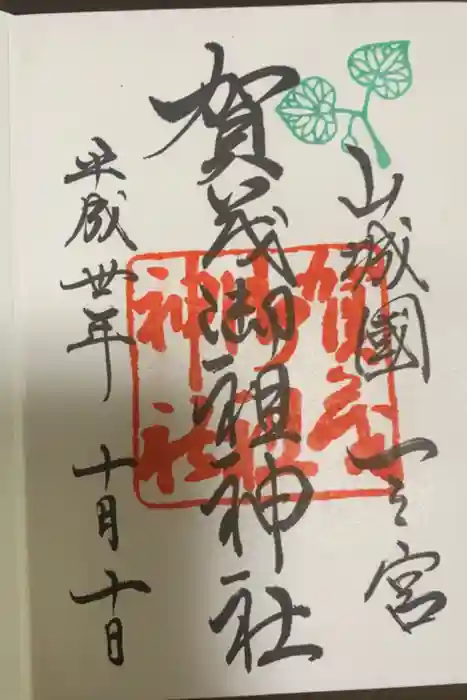 山城國一之宮
賀茂御祖神社
平成卅年 十月十日
賀茂
御祖
神社